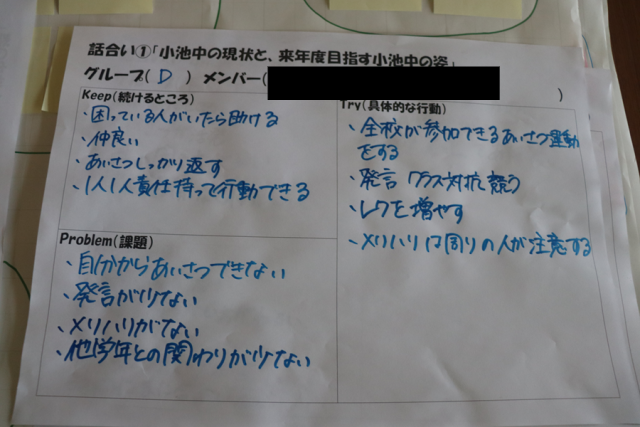 話合い①「小池中の現状と、来年度目指す小池中の姿」
グループ( D ) メンバー( )
Keep(続けるところ)
・困っている人がいたら助ける
・仲良い
・あいさつしっかり返す
・1人1人責任持って行動できる
Problem(課題)
・自分からあいさつできない
・発言が少ない
・メリハリがない
・他学年との関わりが少ない
Try(具体的な行動)
・全校が参加できるあいさつ運動
をする
・発言 クラス対抗 競う
・レクを増やす
・メリハリは周りの人が注意する